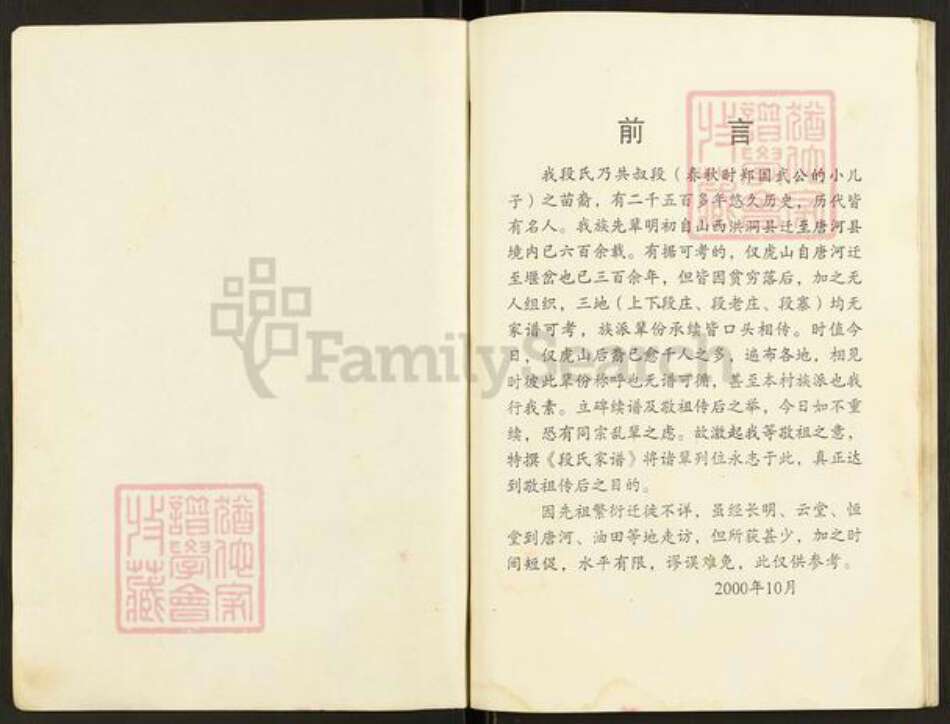 前 言
我段氏乃共叔段（春秋时郑国武公的小儿
子）之苗裔，有二千五百多年悠久历史，历代皆
有名人。我族先辈明初自山西洪洞县迁至唐河县
境内已六百余载。有据可考的，仅虎山自唐河迁
至堰岔也已三百余年，但皆因贫穷落后，加之无
人组织，三地（上下段庄、段老庄、段寨）均无
家谱可考，族派辈份承续皆口头相传。时值今
日，仅虎山后裔已愈千人之多，遍布各地，相见
时彼此辈份称呼也无谱可循，甚至本村族派也我
行我素。立碑续谱及敬祖传后之举，今日如不重
续，恐有同宗乱辈之虑。故激起我等敬祖之意，
特撰《段氏家谱》将诸辈列位永志于此，真正达
到敬祖传后之目的。
因先祖繁衍迁徙不详，虽经长明、云堂、恒
堂到唐河、油田等地走访，但所获甚少，加之时
间短促，水平有限，谬误难免，此仅供参考。
2000年10月
FamilySearch
譜學會
收藏